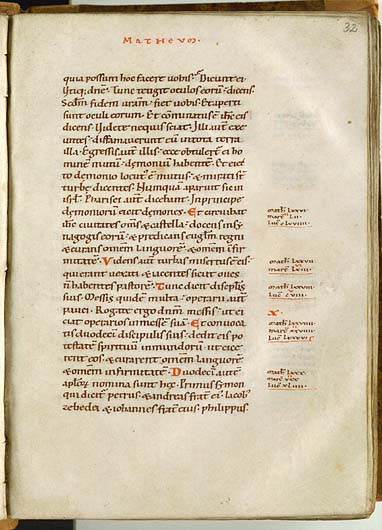 32
MATHEUM.
quia possum hoc facere uobis. Dicunt ei
utiq; dñe. Tunc tetigit oculos eorum dicens.
Scdm fidem uram fiet uobis. Et aperti
sunt oculi eorum. Et cominatus e ihs eis
dicens. Uidete nequis sciat. Illi aut exe
untes. diffamauerunt eu intota terra
illa. Egressis aut illis. ecce obtulert ei ho
mine mutum demonium habente. Et eiec
to demonio locut e mutus. & mirati st
turbe dicentes. Numqua apparuit sic in
isrl. Pharisei aut dicebant. Inprincipe
demoniorũ eicit demones. Et circuibat
ihs ciuitates oms & castella. docens insy
nagogis eorũ. & predicans euglm regni
& curans omnem languore. & omnem infir
mitatẽ. Videns aut turbas misertus e eis.
qui erant uexati & iacentes sicut oues
ñ habentes pastorẽ. Tunc dicit discipulis
suis. Messis quide multa. operarii aut
pauci. Rogate ergo dnm messis. ut ei
ciat operarios inmessẽ suã. Et conuoca
tis duodeci discipulis suis. dedit eis po
testatẽ spirituũ inmundorũ. ut eice
rent eos. & curarent omnem languorẽ
& omem infirmitatẽ. Duodeci autẽ
aplorũ nomina sunt hec. Primus symon
qui dicit petrus. & andreas frat ei. Iacob
zebedei. & iohannes frat eius. philippus.
math lxxvi
marc lii
luc
math lxxvii
marc
math lxxviii
luc
X.
math lxxviiii
marc
luc
math lxxx
marc xxx
luc xliiii